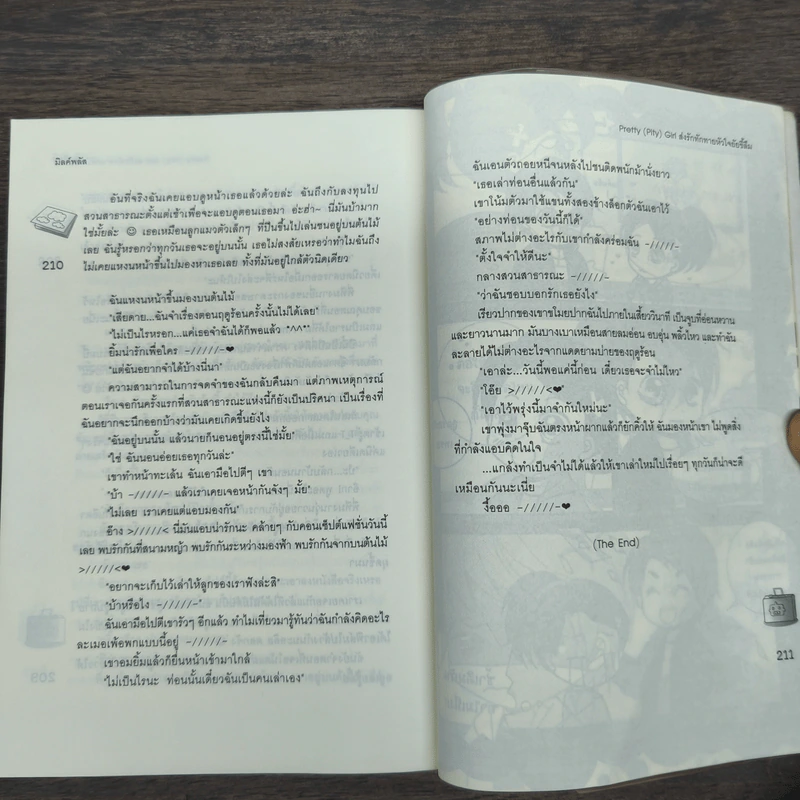 มิลค์พลัส
อันที่จริงฉันเคยแอบดูหน้าเธอแล้วด้วยล่ะ ฉันถึงกับลงทุนไป
สวนสาธารณะตั้งแต่เช้าเพื่อจะแอบดูตอนเธอมา อ่ะฮ่า~ นี่มันบ้ามาก
ใช่มั้ยล่ะ ☺ เธอเหมือนลูกแมวตัวเล็กๆ ที่ปีนขึ้นไปเล่นซนอยู่บนต้นไม้
เลย ฉันรู้หรอกว่าทุกวันเธอจะอยู่บนนั้น เธอไม่สงสัยเหรอว่าทำไมฉันถึง
ไม่เคยแหงนหน้าขึ้นไปมองหาเธอเลย ทั้งที่มันอยู่ใกล้ตัวนิดเดียว
210
ฉันแหงนหน้าขึ้นมองบนต้นไม้
"เสียดาย...ฉันจำเรื่องตอนฤดูร้อนครั้งนั้นไม่ได้เลย"
"ไม่เป็นไรหรอก...แค่เธอจำฉันได้ก็พอแล้ว ^^"
ยิ้มน่ารักเพื่อใคร -/////-❤
"แต่ฉันอยากจำได้บ้างนี่นา"
ความสามารถในการจดจำของฉันกลับคืนมา แต่ภาพเหตุการณ์
ตอนเราเจอกันครั้งแรกที่สวนสาธารณะแห่งนี้ก็ยังเป็นปริศนา เป็นเรื่องที่
ฉันอยากจะนึกออกบ้างว่ามันเคยเกิดขึ้นยังไง
"ฉันอยู่บนนั้น แล้วนายก็นอนอยู่ตรงนี้ใช่มั้ย"
"ใช่ ฉันนอนอ่อยเธอทุกวันล่ะ"
เขาทำหน้าทะเล้น ฉันเอามือไปตีๆ เขา
"บ้า -/////- แล้วเราเคยเจอหน้ากันจังๆ มั้ย"
"ไม่เลย เราเคยแต่แอบมองกัน"
อ๊าง >/////< นี่มันแอบน่ารักนะ คล้ายๆ กับคอนเซ็ปต์แฟชั่นวันนี้
เลย พบรักกันที่สนามหญ้า พบรักกันระหว่างมองฟ้า พบรักกันจากบนต้นไม้
>/////<❤
"อยากจะเก็บไว้เล่าให้ลูกของเราฟังล่ะสิ"
"บ้าหรือไง -/////-"
ฉันเอามือไปตีเขารัวๆ อีกแล้ว ทำไมเที่ยวมารู้ทันว่าฉันกำลังคิดอะไร
ละเมอเพ้อพกแบบนี้อยู่ -/////-
เขาอมยิ้มแล้วก็ยื่นหน้าเข้ามาใกล้
"ไม่เป็นไรนะ ท่อนนั้นเดี๋ยวฉันเป็นคนเล่าเอง"
Pretty (Pity) Girl ส่งรักทักทายหัวใจยัยขี้ลืม
ฉันเอนตัวถอยหนีจนหลังไปชนติดพนักม้านั่งยาว
"เธอเล่าท่อนอื่นแล้วกัน"
เขาโน้มตัวมาใช้แขนทั้งสองข้างล็อกตัวฉันเอาไว้
"อย่างท่อนของวันนี้ก็ได้"
สภาพไม่ต่างอะไรกับเขากำลังคร่อมฉัน -/////-
"ตั้งใจจำให้ดีนะ"
กลางสวนสาธารณะ -/////-
"ว่าฉันชอบบอกรักเธอยังไง"
เรียวปากของเขาขโมยปากฉันไปภายในเสี้ยววินาที เป็นจูบที่อ่อนหวาน
และยาวนานมาก มันบางเบาเหมือนสายลมอ่อน อบอุ่น พลิ้วไหว และทำฉัน
ละลายได้ไม่ต่างอะไรจากแดดยามบ่ายของฤดูร้อน
"เอาล่ะ...วันนี้พอแค่นี้ก่อน เดี๋ยวเธอจะจำไม่ไหว"
"โอ๊ย >/////<❤"
"เอาไว้พรุ่งนี้มาจำกันใหม่นะ"
เขาพุ่งมาจุ๊บฉันตรงหน้าผากแล้วก็ยักคิ้วให้ ฉันมองหน้าเขา ไม่พูดสิ่ง
ที่กำลังแอบคิดในใจ
...แกล้งทำเป็นจำไม่ได้แล้วให้เขาเล่าใหม่ไปเรื่อยๆ ทุกวันก็น่าจะดี
เหมือนกันนะเนี่ย
งื้อออ -/////-❤
(The End)
211